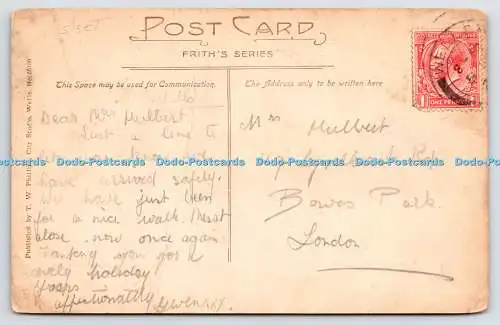 5SET
POST CARD
FRITH'S SERIES
This Space may be used for Communication.
The Address only to be written here
ONE PENNY
Published by T. W. Phillips, City Studio, Wells.
Dear Mrs Hulbert
Just a line to
have arrived safely.
We have just been
for a nice walk. Must
close now once again
Thanking you for a
lovely holiday
Yours
affectionately Gwen xxx
Mrs Hulbert
Bowes Park
London
Dodo-Postcards Dodo-Postcards Dodo-Postcards Dodo-Postcards Dodo-Postcards